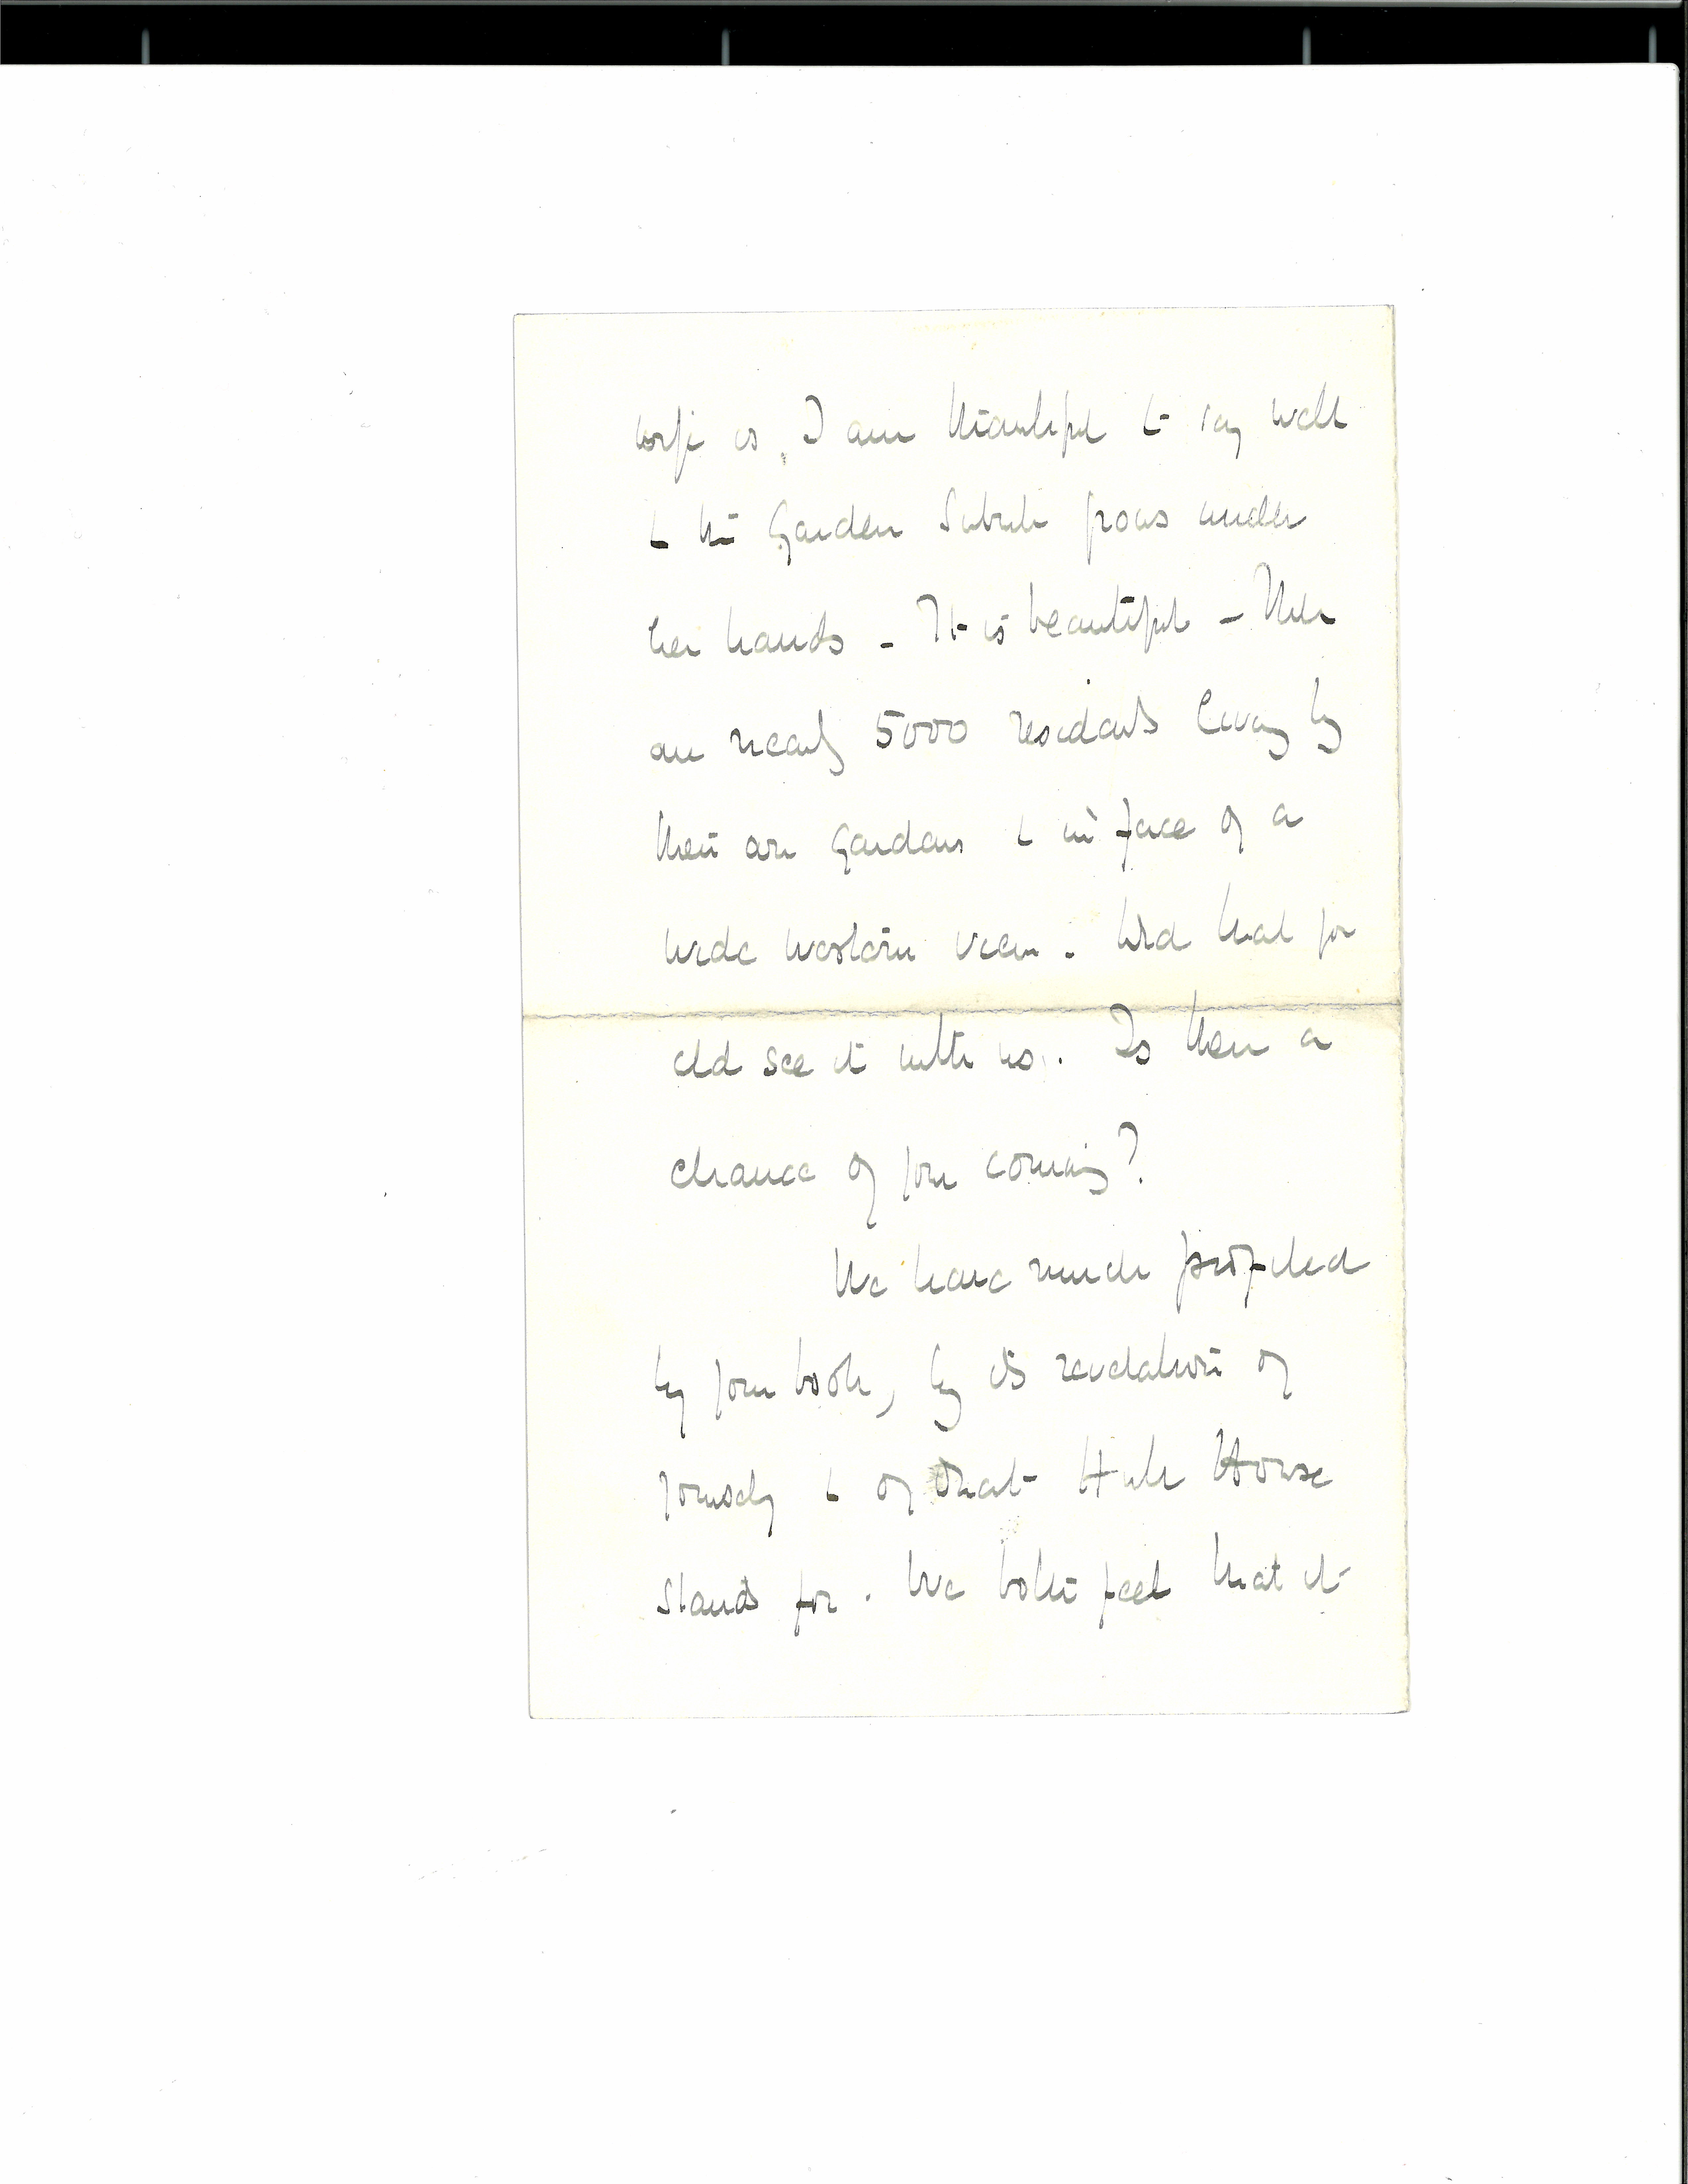 wife is, I am thankful to say well
& the Garden Suburb grows under
her hands - It is beautiful - There
are nearly 5000 residents living by
their own gardens & in face of a
wide western view. Wd that you
cld see it with us. Is there a
chance of your coming?
We have much profited
by your book, by its revelation of
yourself & of that Hull House
stands for. We both feel that it